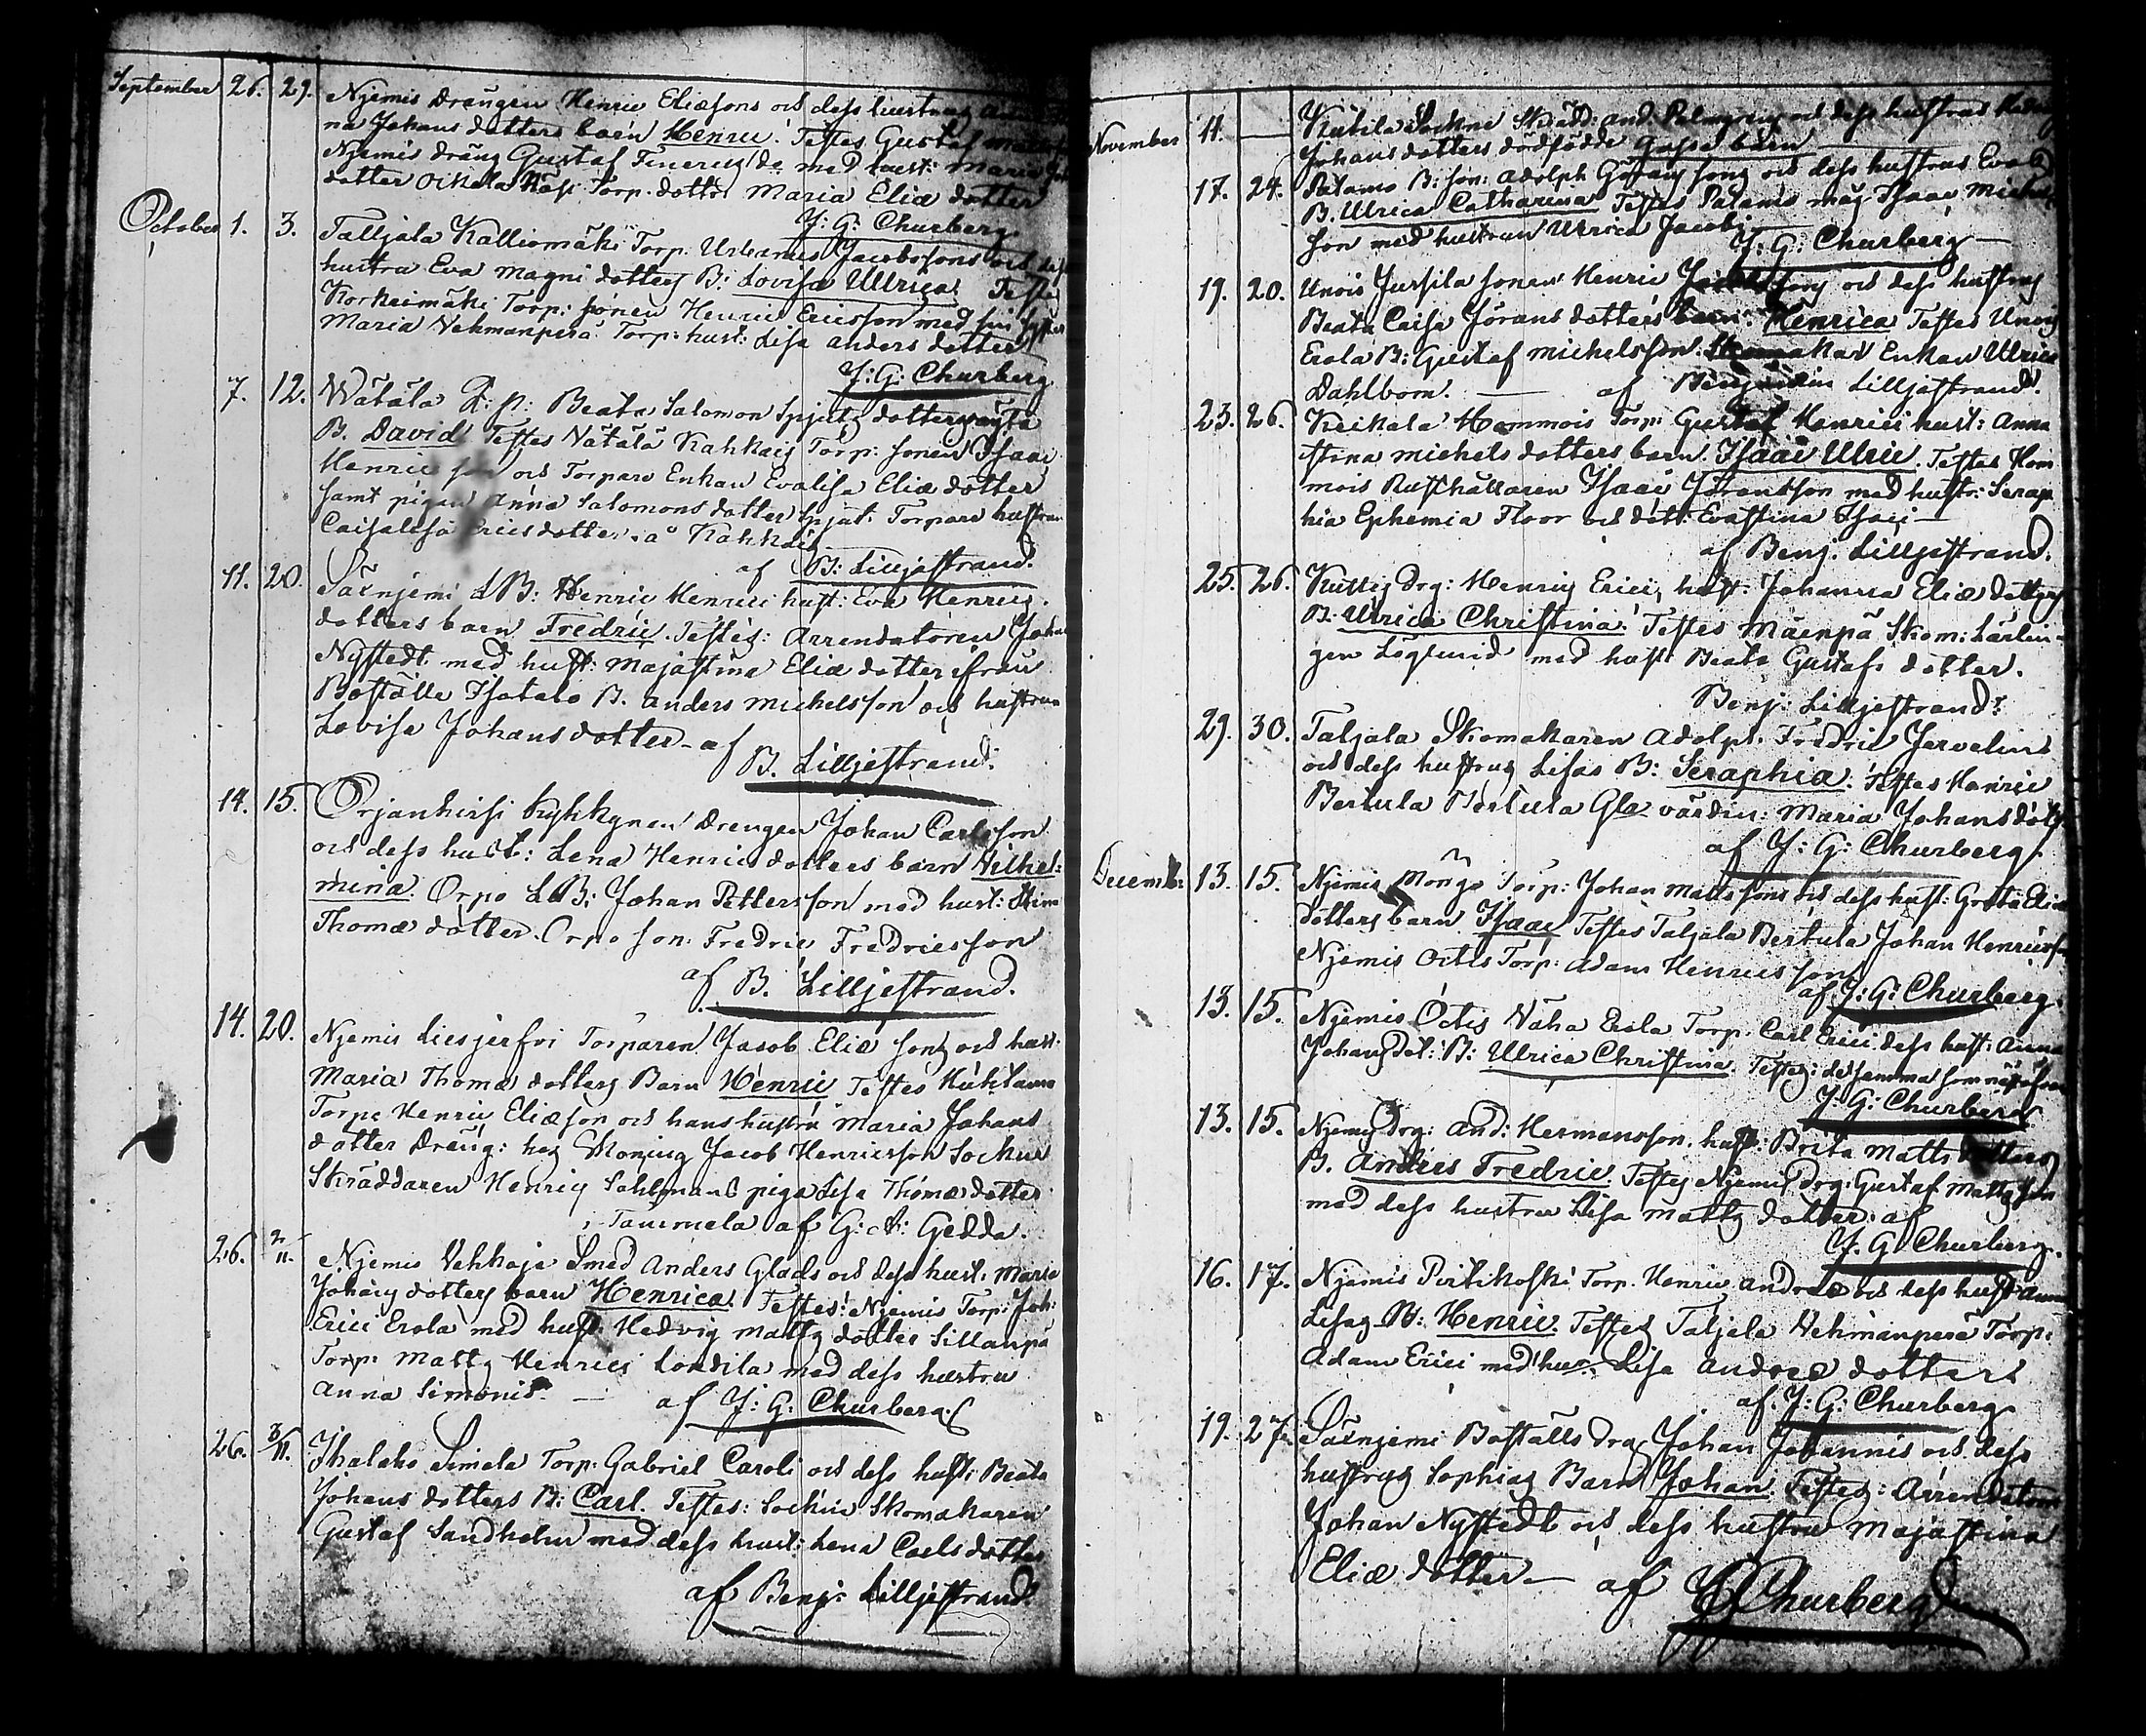 September 26. 29. Njemis Drengen Henric Eliæsons och dess hustrus
na Johans dotters barn Henric. Testes Gustaf
Njemis dräng Gustaf d:o med hust: Maria
dotter Oikola Torp. dotter Maria Eliæ dotter
J: G: Churberg
October 1. 3. Talljala Kalliomäki Torp. Urbanus Jacobssons och dess
hustru Eva Magni dotters B: Lovisa Ullrica Testes
Korkeimäki Torp: sonen Henric Ericsson med sin syster
Maria Nehmanperä Torp: hust: Lisa Anders dotter
J: G: Churberg
7. 12. Wätälä Q: p: Beata Salomon dotters oägta
B. David Testes Nätälä Kahkais Torp: sonen Isaac
Henric son och Torpare Enkan Evalisa Eliæ dotter
samt pigan Anna Salomons dotter Torpare hustrun
Caisalisa Erics dotter. a Kahkais
af B: Lilljestrand.
11. 20. Säenjemi LB: Henric Henrici hust: Eva Henrics
dotters barn Fredric. Testes: Arrendatoren Johan
Nystedt med hust: Majastina Eliæ dotter ifrån
Boställe Isotalo B. Anders Michelsson och hustrun
Lovisa Johans dotter - af
B. Lilljestrand.
14. 15. Orjanhirsi Kyhkynen Drengen Johan Carlsson
och dess hust: Lena Henrics dotters barn Wilhel:
mina. Orpo LB: Johan Pettersson med hust: Stina
Thomæ dotter. Orpo son: Fredric Fredricsson
af B. Lilljestrand.
14. 20. Njemis Liesjerfvi Torparen Jacob Eliæ sons och hust.
Maria Thomæ dotters Barn Henric Testes
Torpe Henric Eliæson och hans hustru Maria Johans
dotter Dräng: hos Moning Jacob Henricsson Sockne
Skräddaren Henric Sahlmans piga Lisa Thomæ dotter
i Tammela af G: A: Gedda.
26. 2/11. Njemis Vehkoja Smed Anders Glads och dess hust. Maria
Johans dotters barn Henrica. Testes: Njemis Torp: Joh:
Erici Erola med hust Hedvig Matts dotter Sillanpä
Torp: Matts Henrici med dess hustru
Anna Simonis. — af J: G: Churberg.
26. 3/11. Jhalaho Simela Torp: Gabriel Caroli och dess hust: Beata
Johans dotters B: Carl. Testes: Sockne Skomakaren
Gustaf Sandholm med dess hust: Lena Carls dotter
af Benj: Lilljestrand.
November 11. — Kutila Sockne Skrädd: And: Palmgrens och dess hustrus
Johans dotters dödfödde Gosse barn —
17. 24. Palamo B: son: Adolph Görans sons och dess hustrus Eva
B. Ulrica Catharina Testes Palamo måg Isaac Michels
son med hustrun Ulrica Jacobi
J: G: Churberg
19. 20. Unois Jursila sonen Henric och dess hustrus
Beata Caisa Jörans dotters barn: Henrica Testes Unois
Erola B: Gustaf Michelsson. Enkan Ulrica
Dahlbom. — af Benjamin Lilljestrand.
23. 26. Keikala Hommois Torp: Gustaf Henrici hust: Anna
stina Michels dotters barn Isaac Ulric. Testes Hom
mois Rusthållaren Isaac Joransson med hustr: Serap
hia Ephemia Floor och dott: Evastina Isaci —
af Benj. Lilljestrand.
25. 26. Kuttis Drg: Henrics Erici, hust. Johanna Eliæ dotters
B. Ulrica Christina. Testes Mäenpä Skom: Lärlin-
gen med hust Beata Gustafs dotter.
Benj: Lilljestrand.
29. 30. Taljala Skomakaren Adolph Fredric Jervelins
och dess hustrus Lisas B: Seraphia. Testes Henric
Bertula Bertula Gla värdin: Maria Johans dotter
af J: G: Churberg.
December 13. 15. Njemis Mongo Torp: Johan Matts sons och dess hust: Greta Eliæ
dotters barn Isaac Testes Taljala Bertula Johan Henricsson
Njemis Octis Torp: Adam Henrics son
af J: G: Churberg.
13. 15. Njemis Octis Näha Erola Torp. Carl Erici dess hust: Anna
Johans dot: B: Ulrica Christina Testes: de samma som näst ofvan
J: G: Churberg
13. 15. Njemis Drg: And: Hermansson. hust: Brita Matts dotters
B. Anders Fredric. Testes Njemis Drg: Gustaf Matts son
med dess hustru Lisa Matts dotter. af
J. G. Churberg.
16. 17. Njemis Pirtikoski Torp. Henric Andreæ och dess hust Anna
Lisas B: Henric. Testes Taljala Nehmanperä Torp:
Adam Erici med hus: Lisa Andreæ dotter
af. J: G: Churberg.
19. 27. Säenjemi Boställs Drg Johan Johannis och dess
hustrus Sophias Barn Johan Testes: Arrendatorn
Johan Nystedt och dess hustru Majastina
Eliæ dotter — af JGChurberg